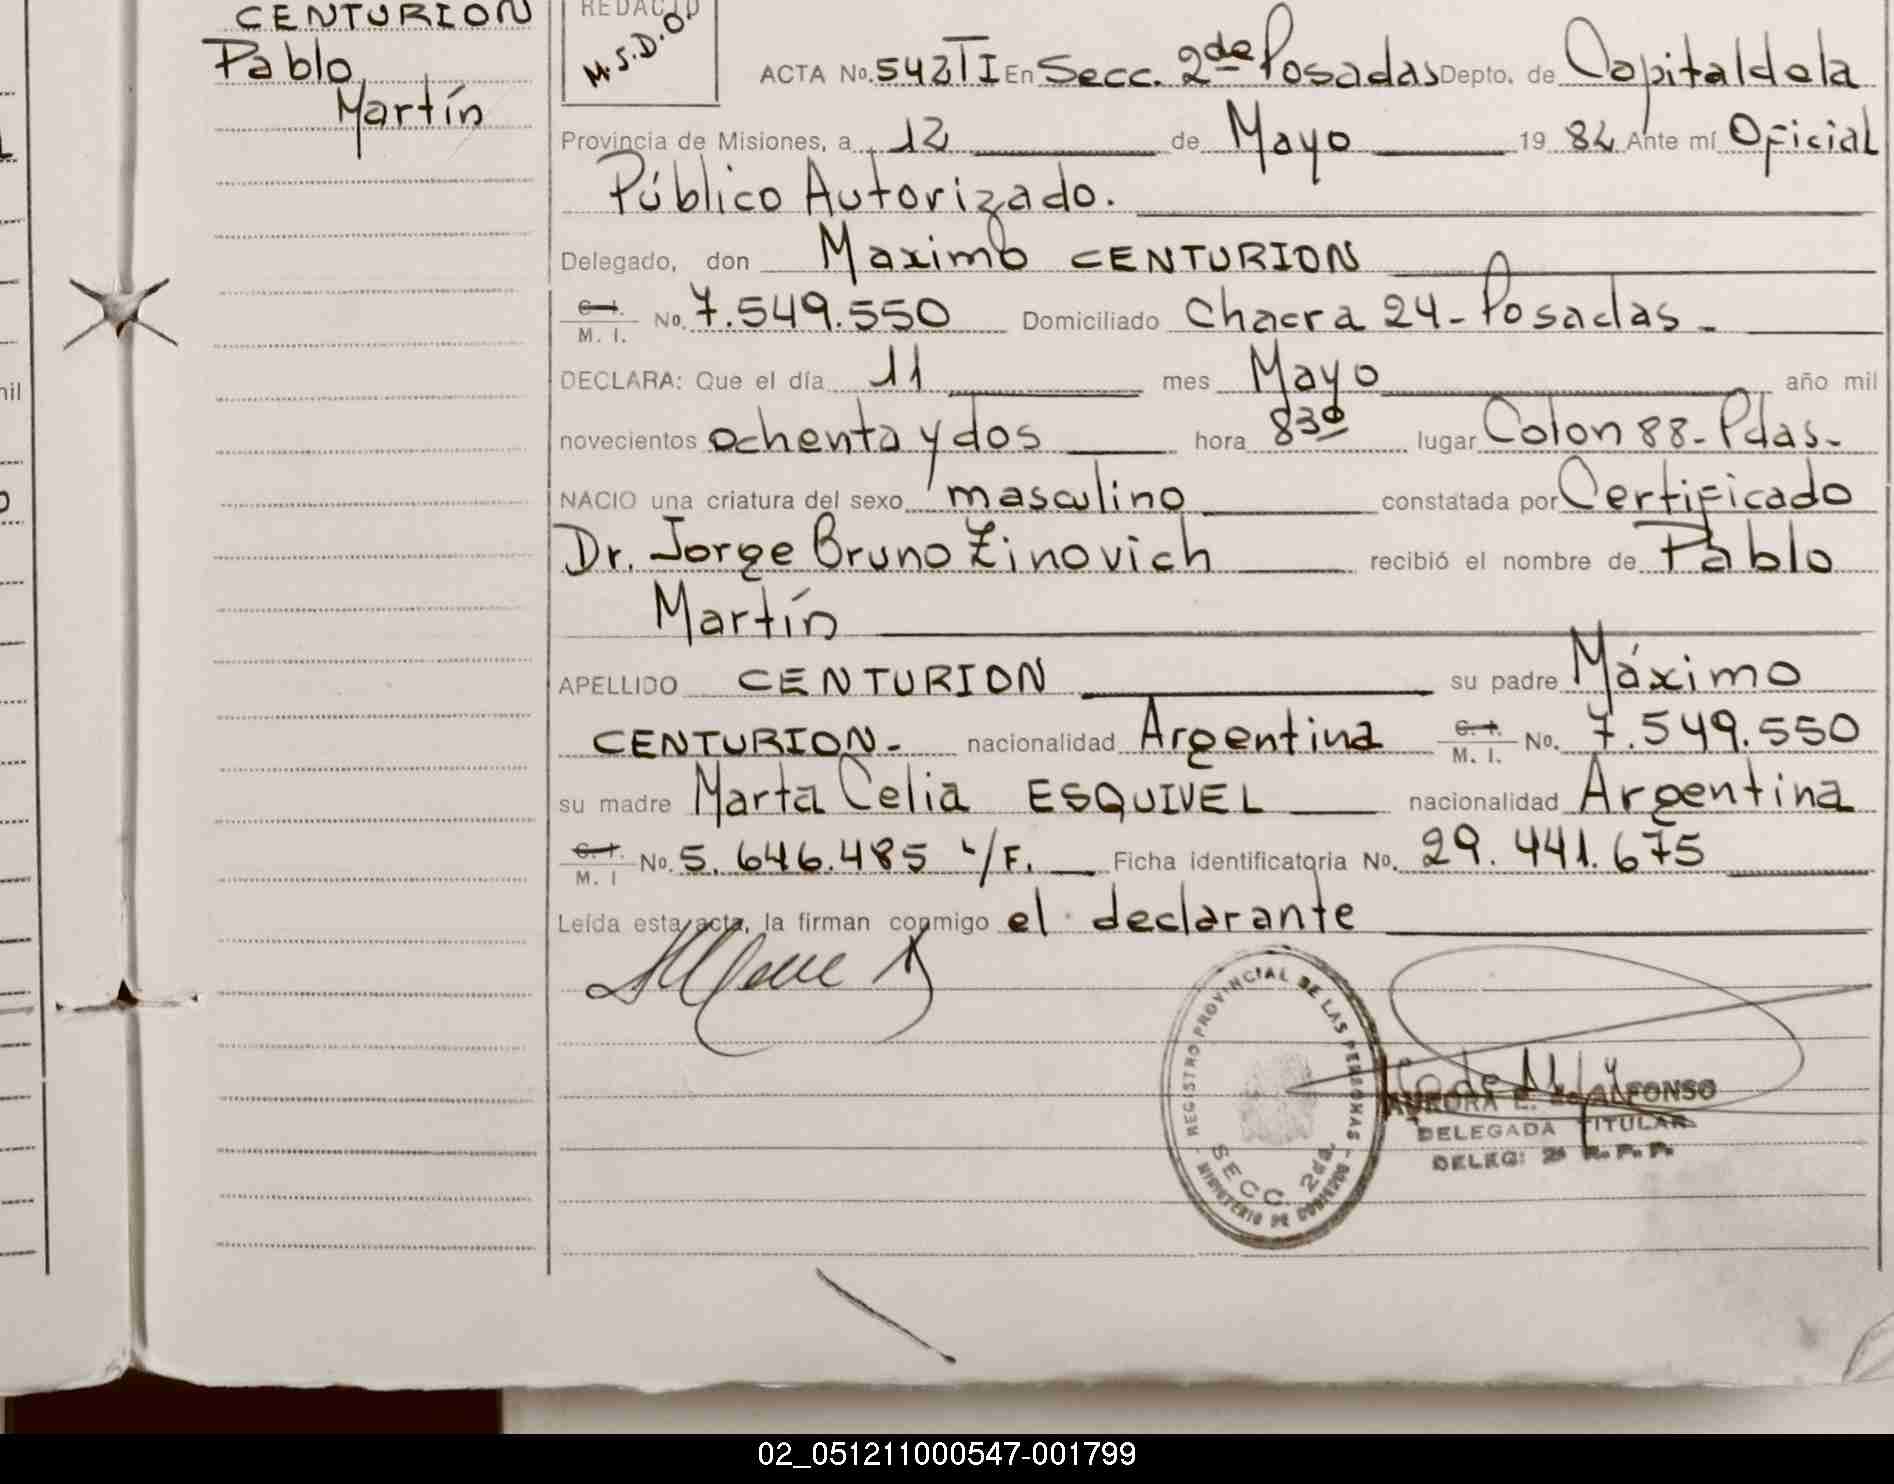 CENTURION
Pablo
Martín
REDACTO
M.S.D.O.
ACTA No. 542 TI En Secc. 2de Posadas Depto. de Capital de la
Provincia de Misiones, a 12 de Mayo 19 82 Ante mí Oficial
Público Autorizado.
Delegado, don Maximo CENTURION
C. I.
M. I. No. 7.549.550 Domiciliado Chacra 24-Posadas-
DECLARA: Que el día 11 mes Mayo año mil
novecientos ochenta y dos hora 830 lugar Colon 88-Pdas-
NACIO una criatura del sexo masculino constatada por Certificado
Dr. Jorge Bruno Zinovich recibió el nombre de Pablo
Martín
APELLIDO CENTURION su padre Máximo
CENTURION- nacionalidad Argentina C. I. M. I. No. 7.549.550
su madre Marta Celia ESQUIVEL nacionalidad Argentina
C. I. M. I No. 5.646.485 L/F. Ficha identificatoria No. 29.441.675
Leída esta acta, la firman conmigo el declarante
REGISTRO PROVINCIAL DE LAS PERSONAS
SECC. 2da.
MINISTERIO DE GOBIERNO
AURORA E. ALFONSO
DELEGADA TITULAR
DELEG: 2a R. P. P.
nil
02_051211000547-001799